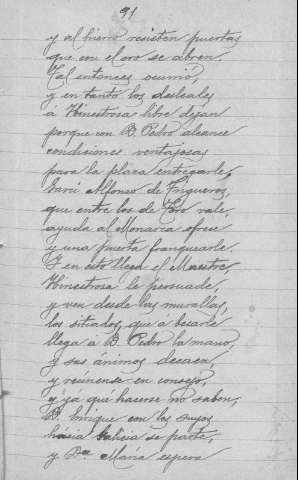 91
y al hierro resisten puertas
que con el oro se abren.
Tal entonces ocurrió,
y en tanto los desleales
á Hinestrosa libre dejan
porque con D. Pedro alcance
condiciones ventajosas
para la plaza entregarle,
Garci Alfonso de Trigueros,
que entre los de Toro vale,
ayuda al Monarca ofrece
y una puerta franquearle.
Y en esto llega el Maestre,
Hinestrosa le persuade,
y ven desde las murallas,
los sitiados, que á besarle
llega á D. Pedro la mano,
y sus ánimos decaen,
y reúnense en consejo,
y ya qué hacerse no saben,
D. Enrique con los suyos
hácia Galicia se parte,
y Dª María espera